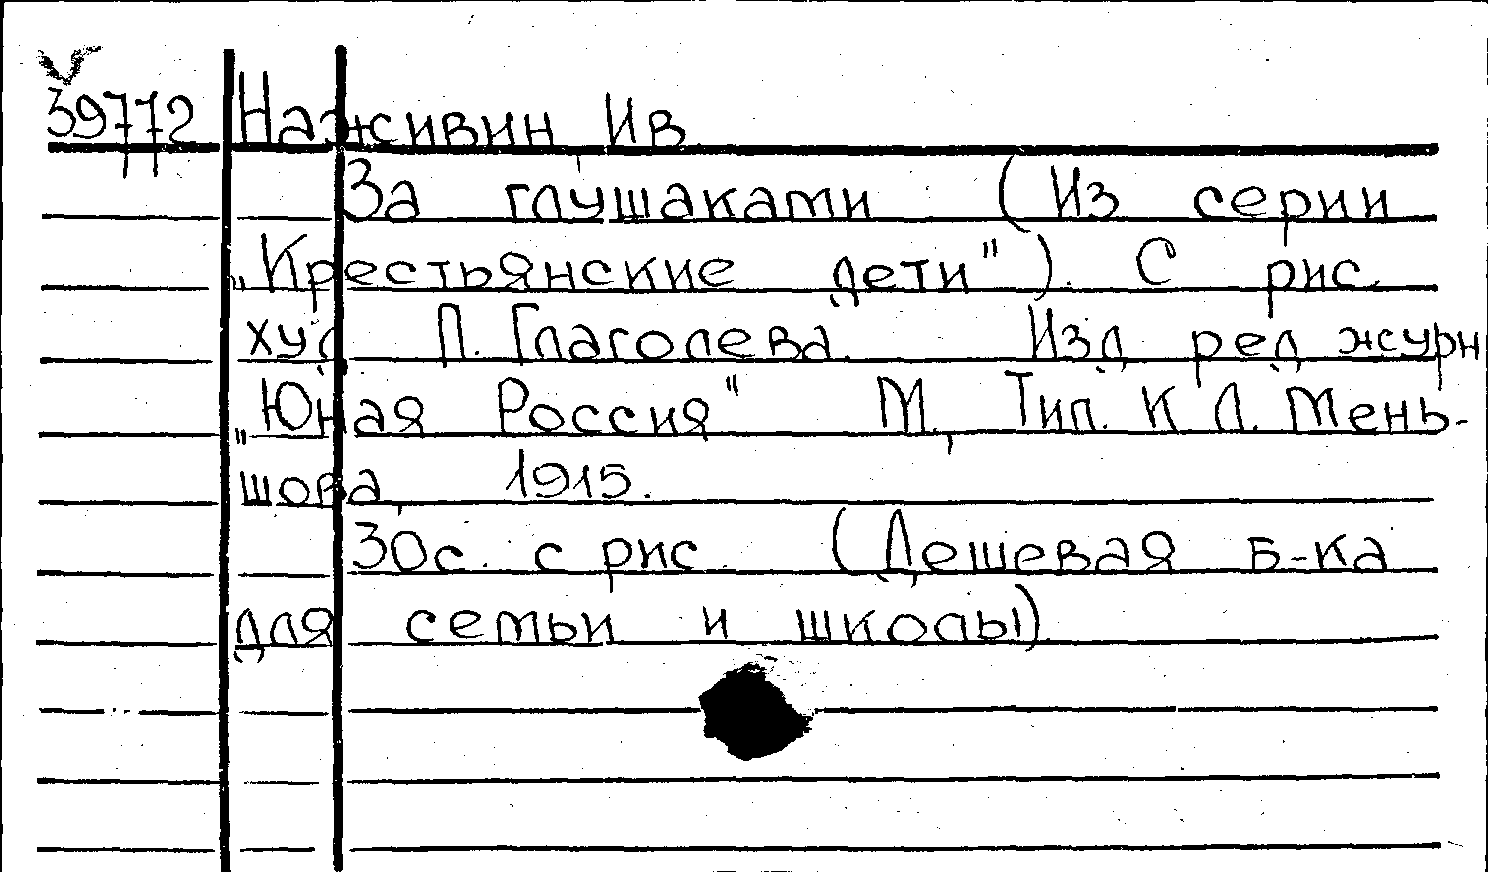 39772 Наживин Ив.
За глушаками (Из серии
„Крестьянские дети"). С рис.
худ. П. Глаголева. Изд. ред. журн.
„Юная Россия" М., Тип. К. Л. Мень-
шова, 1915.
30с. с рис. (Дешевая б-ка
для семьи и школы)